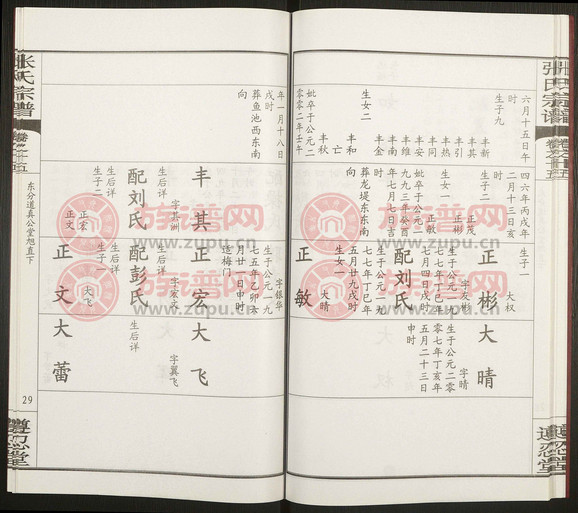 张氏宗谱
六月十五日午
时
生子九
丰新
丰其
丰引
丰热
丰安
丰同
丰维
丰南
丰和
丰秋 亡
生女二
妣卒于公元二
零零二年壬午
年一月十八日
戌时
葬鱼池西东南
向
四六年丙戌年
二月十三日亥
时
生子二
正茂
正彬
生女一
正敏
妣卒于公元一
九九三年癸酉
年七月七日吉
时
葬龙堤东东南
向
丰其
字其洲
配刘氏
生后详
生子二
正宏
正文
生子一
大权
正彬
字友彬
生于公元一九
七七年丁巳年
七月四日戌时
配刘氏
生于公元一九
七七年丁巳年
五月廿九戌时
生女一
大晴
正敏
字银华
生于公元一九
七五年乙卯六
月廿一日申时
适梅门
正宏
字宏永
配彭氏
生后详
生子一
大飞
正文
生后详
大晴
字晴
生于公元二零
零七年丁亥年
五月二十三日
申时
大飞
字翼飞
大蕾
生后详
东分道真公堂旭直下
29
张氏宗谱
www.zupu.cn
www.zupu.cn